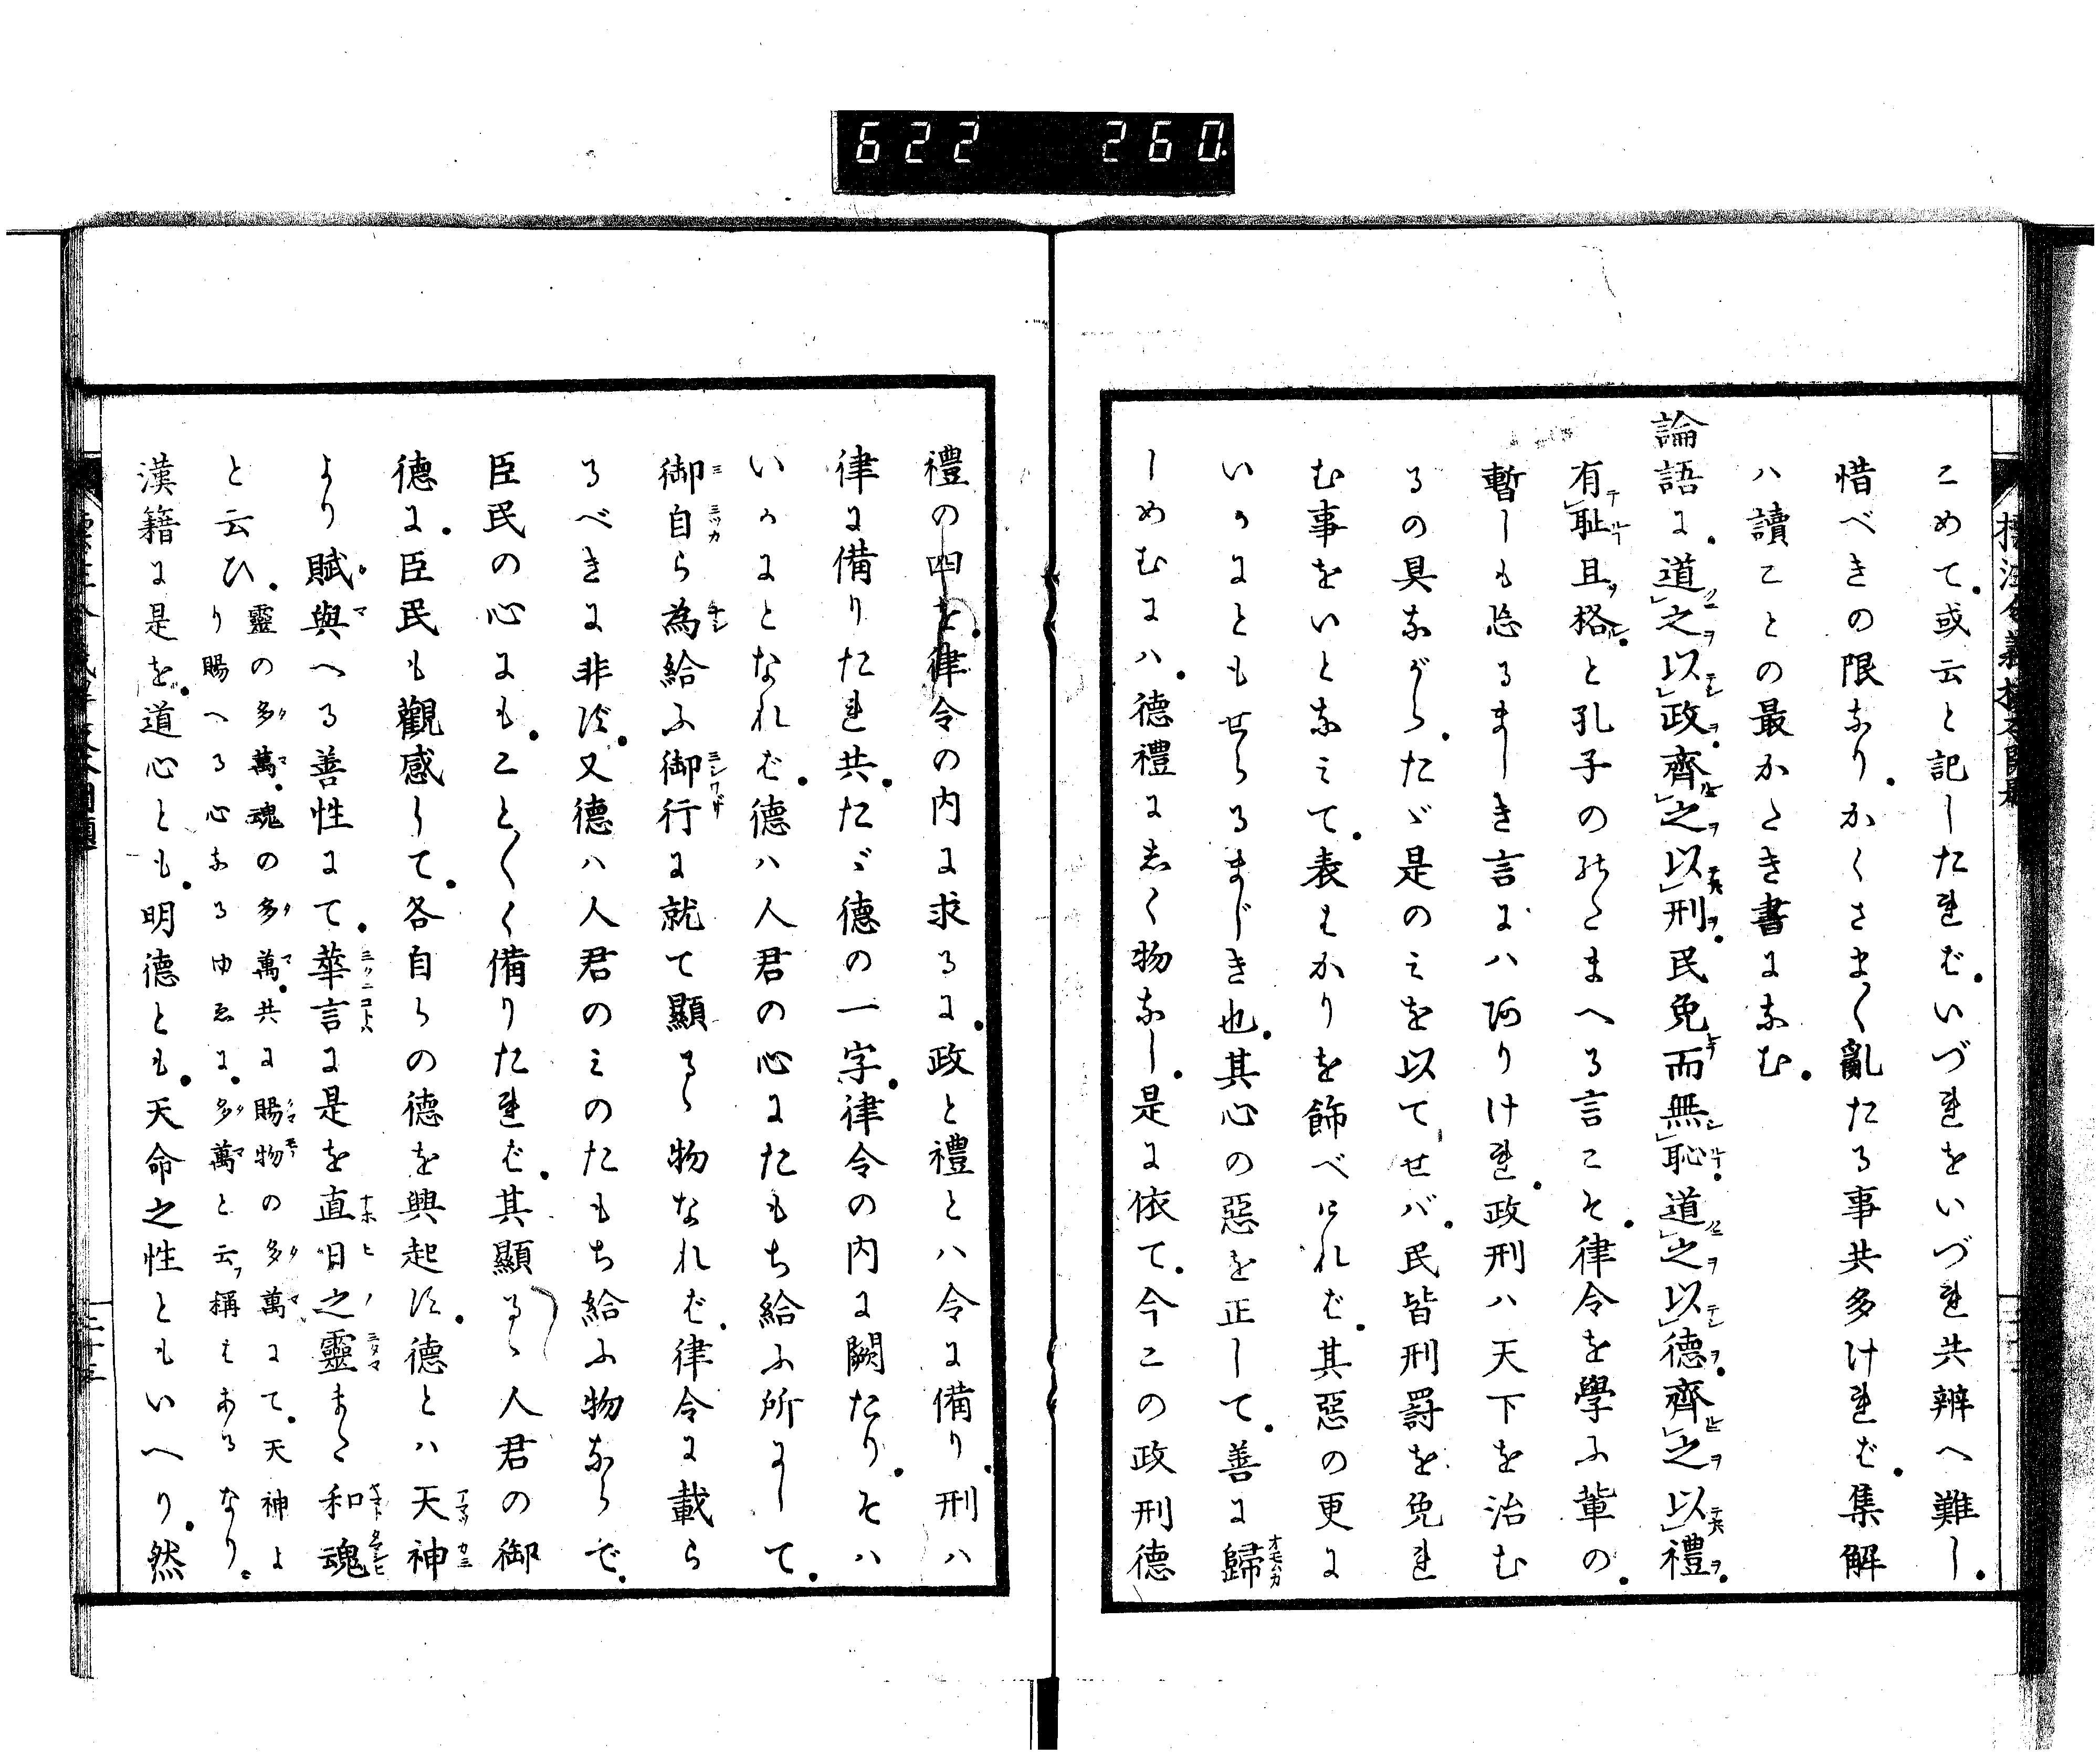 622 260
こめて。或云と記したれば。いづれをいづれ共辨へ難し。
惜べきの限なり。かくさま〲亂たる事共多ければ。集解
ハ讀ことの最かたき書になむ。
論語に。道之以政。齊之以刑。民免而無恥。道之以德。齊之以禮。
有恥且格。と孔子ののたまへる言こそ。律令を學ふ輩の。
暫しも忘るましき言にハ阿りけれ。政刑ハ天下を治む
るの具ながら。たゞ是のミを以てせバ。民皆刑罸を免れ
む事をいとなミて。表をかりを飾べけれバ。其惡の更に
いかにともせらるまじき也。其心の惡を正して。善に歸
しめむにハ。德禮にしく物なし。是に依て。今この政刑德
禮の四を。律令の内に求るに。政と禮とハ令に備り。刑ハ
律に備りたれ共。たゞ德の一字。律令の内に闕たり。そハ
いかにとなれば。德ハ人君の心にたもち給ふ所にして。
御自ら為給ふ御行に就て顯るゝ物なれば。律令に載ら
るべきに非ず。又德ハ人君のミのたもち給ふ物ならで。
臣民の心にも。こと〲く備りたれば。其顯るゝ人君の御
德に。臣民も觀感して。各自らの德を興起す。德とハ天神
より賦與へる善性にて。華言に是を直日之靈また和魂
と云ひ。靈の多萬。魂の多萬。共に賜物の多萬にて。天神よ
り賜へる心なるゆゑに。多萬と云フ稱もあるなり。
漢籍に是を。道心とも。明德とも。天命之性ともいへり。然